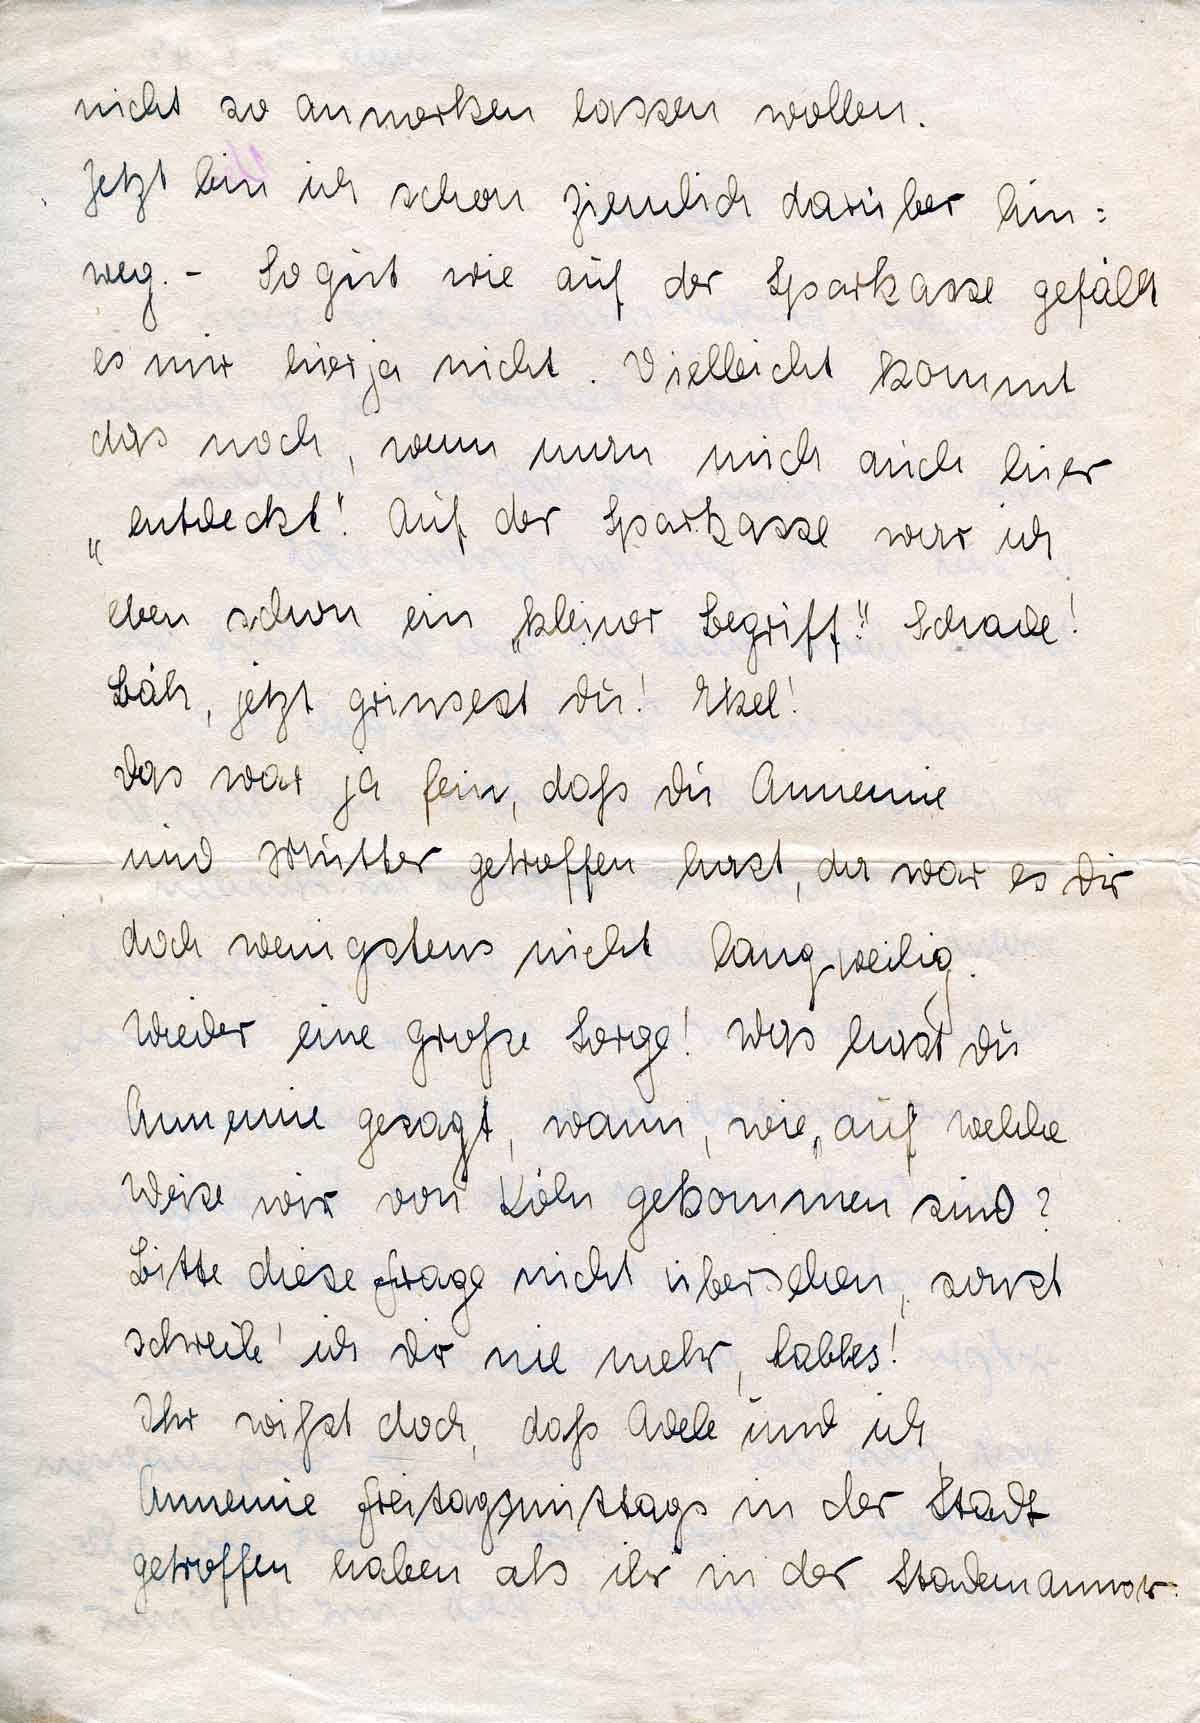 nicht so anmerken lassen wollen.
Jetzt bin ich schon ziemlich darüber hin=
weg. – So gut wie auf der Sparkasse gefällt
es mir hier ja nicht. Vielleicht kommt
das noch, wenn man mich auch hier
„entdeckt“. Auf der Sparkasse war ich
eben schon ein „kleiner Begriff“. Schade!
Bäh, jetzt grinsest Du! Ekel!
Das war ja fein, daß Du Annemie
und Mutter getroffen hast, da war es Dir
doch wenigstens nicht langweilig.
Wieder eine große Sorge! Was hast Du
Annemie gesagt, wann, wie, auf welche
Weise wir von Köln gekommen sind?
Bitte diese Frage nicht übersehen, sonst
schreib' ich Dir nie mehr, babbes!
Ihr wißt doch, daß Adele und ich
Annemie freitagsmittags in der Stadt
getroffen haben als ihr in der